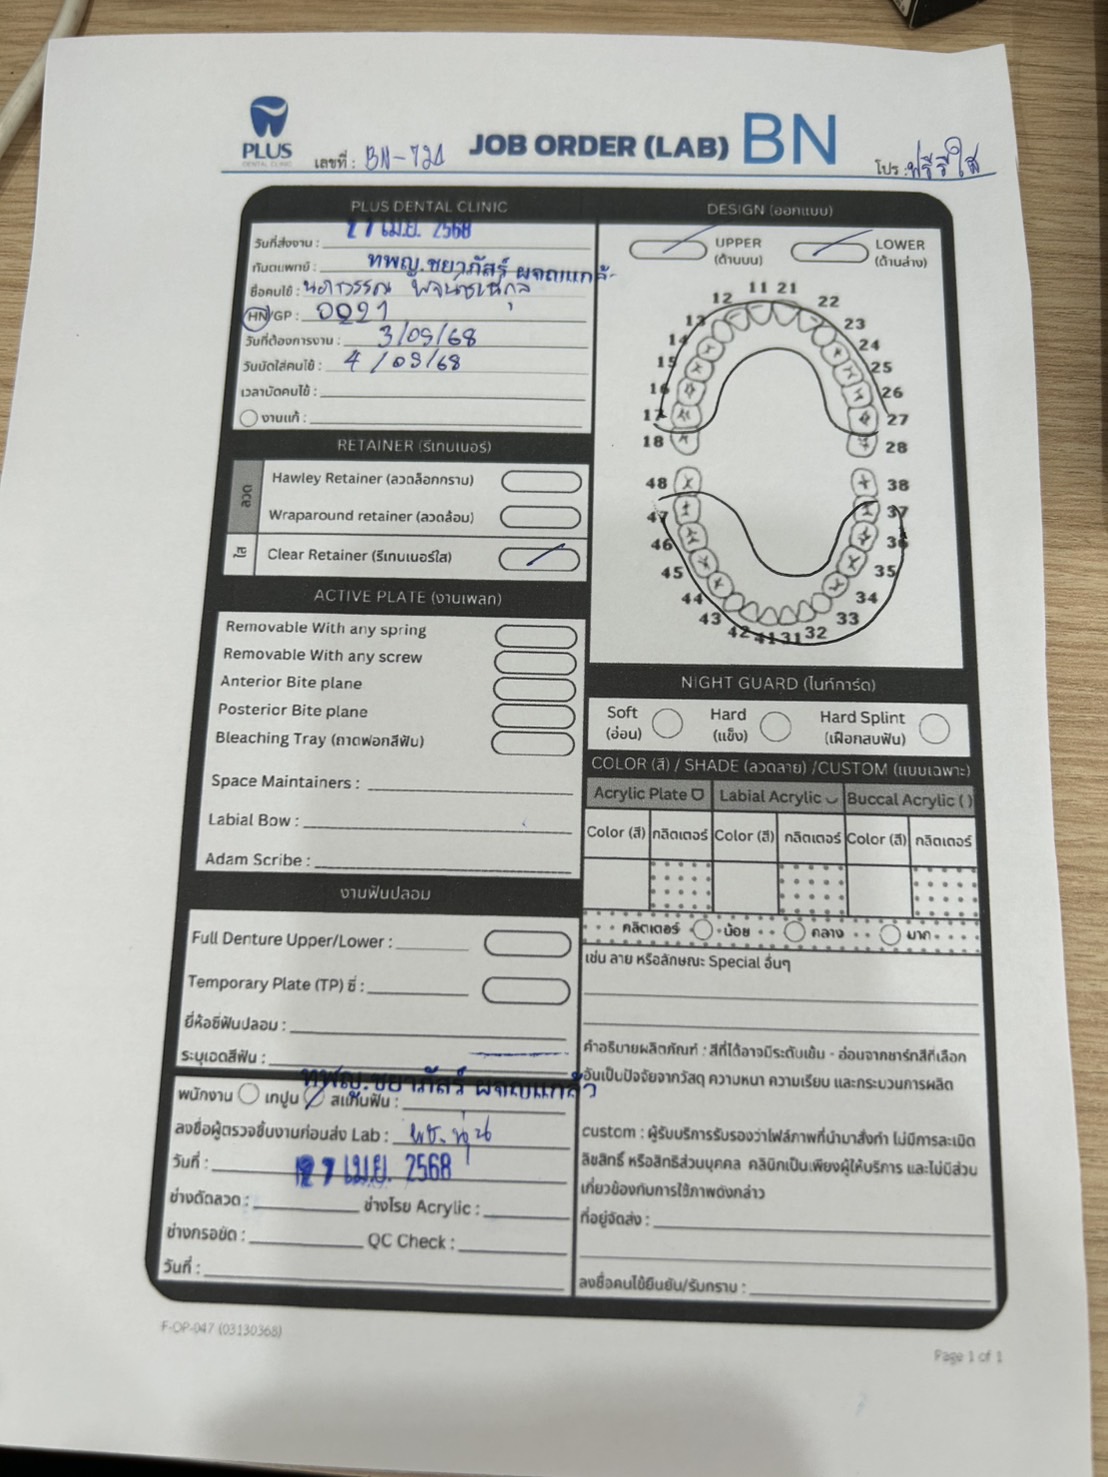 PLUS
DENTAL CLINIC
เลขที่ : BN-724
JOB ORDER (LAB) BN
โปร : ฟรีรีใส
PLUS DENTAL CLINIC
วันที่ส่งงาน : 27 เม.ย. 2568
ทันตแพทย์ : ทพญ.ชยาภัสร์ ผจญแกล้ว
ชื่อคนไข้ :
HN/GP : 0091
วันที่ต้องการงาน : 3/05/68
วันนัดใส่คนไข้ : 4/05/68
เวลานัดคนไข้ :
งานแก้ :
RETAINER (รีเทนเนอร์)
ลวด
Hawley Retainer (ลวดล็อกกราม)
Wraparound retainer (ลวดล้อม)
ใส
Clear Retainer (รีเทนเนอร์ใส)
ACTIVE PLATE (งานเพลท)
Removable With any spring
Removable With any screw
Anterior Bite plane
Posterior Bite plane
Bleaching Tray (ถาดฟอกสีฟัน)
Space Maintainers :
Labial Bow :
Adam Scribe :
งานฟันปลอม
Full Denture Upper/Lower :
Temporary Plate (TP) ซี่ :
ยี่ห้อซี่ฟันปลอม :
ระบุเฉดสีฟัน :
ทพญ.ชยาภัสร์ ผจญแกล้ว
พนักงาน เทปูน สแกนฟัน :
ลงชื่อผู้ตรวจชิ้นงานก่อนส่ง Lab : พช. นุ่น
วันที่ : 27 เม.ย. 2568
ช่างดัดลวด : ช่างโรย Acrylic :
ช่างกรอขัด : QC Check :
วันที่ :
DESIGN (ออกแบบ)
UPPER
(ด้านบน)
LOWER
(ด้านล่าง)
11 21
12 22
13 23
14 24
15 25
16 26
17 27
18 28
48 38
47 37
46 36
45 35
44 34
43 33
42 41 31 32
NIGHT GUARD (ไนท์การ์ด)
Soft
(อ่อน)
Hard
(แข็ง)
Hard Splint
(เฝือกสบฟัน)
COLOR (สี) / SHADE (ลวดลาย) /CUSTOM (แบบเฉพาะ)
Acrylic Plate Labial Acrylic Buccal Acrylic ( )
Color (สี) กลิตเตอร์ Color (สี) กลิตเตอร์ Color (สี) กลิตเตอร์
กลิตเตอร์ น้อย กลาง มาก
เช่น ลาย หรือลักษณะ Special อื่นๆ
คำอธิบายผลิตภัณฑ์ : สีที่ได้อาจมีระดับเข้ม - อ่อนจากชาร์ทสีที่เลือก
อันเป็นปัจจัยจากวัสดุ ความหนา ความเรียบ และกระบวนการผลิต
custom : ผู้รับบริการรับรองว่าไฟล์ภาพที่นำมาสั่งทำ ไม่มีการละเมิด
ลิขสิทธิ์ หรือสิทธิส่วนบุคคล คลินิกเป็นเพียงผู้ให้บริการ และไม่มีส่วน
เกี่ยวข้องกับการใช้ภาพดังกล่าว
ที่อยู่จัดส่ง :
ลงชื่อคนไข้ยืนยัน/รับทราบ :
F-OP-047 (03130368)
Page 1 of 1